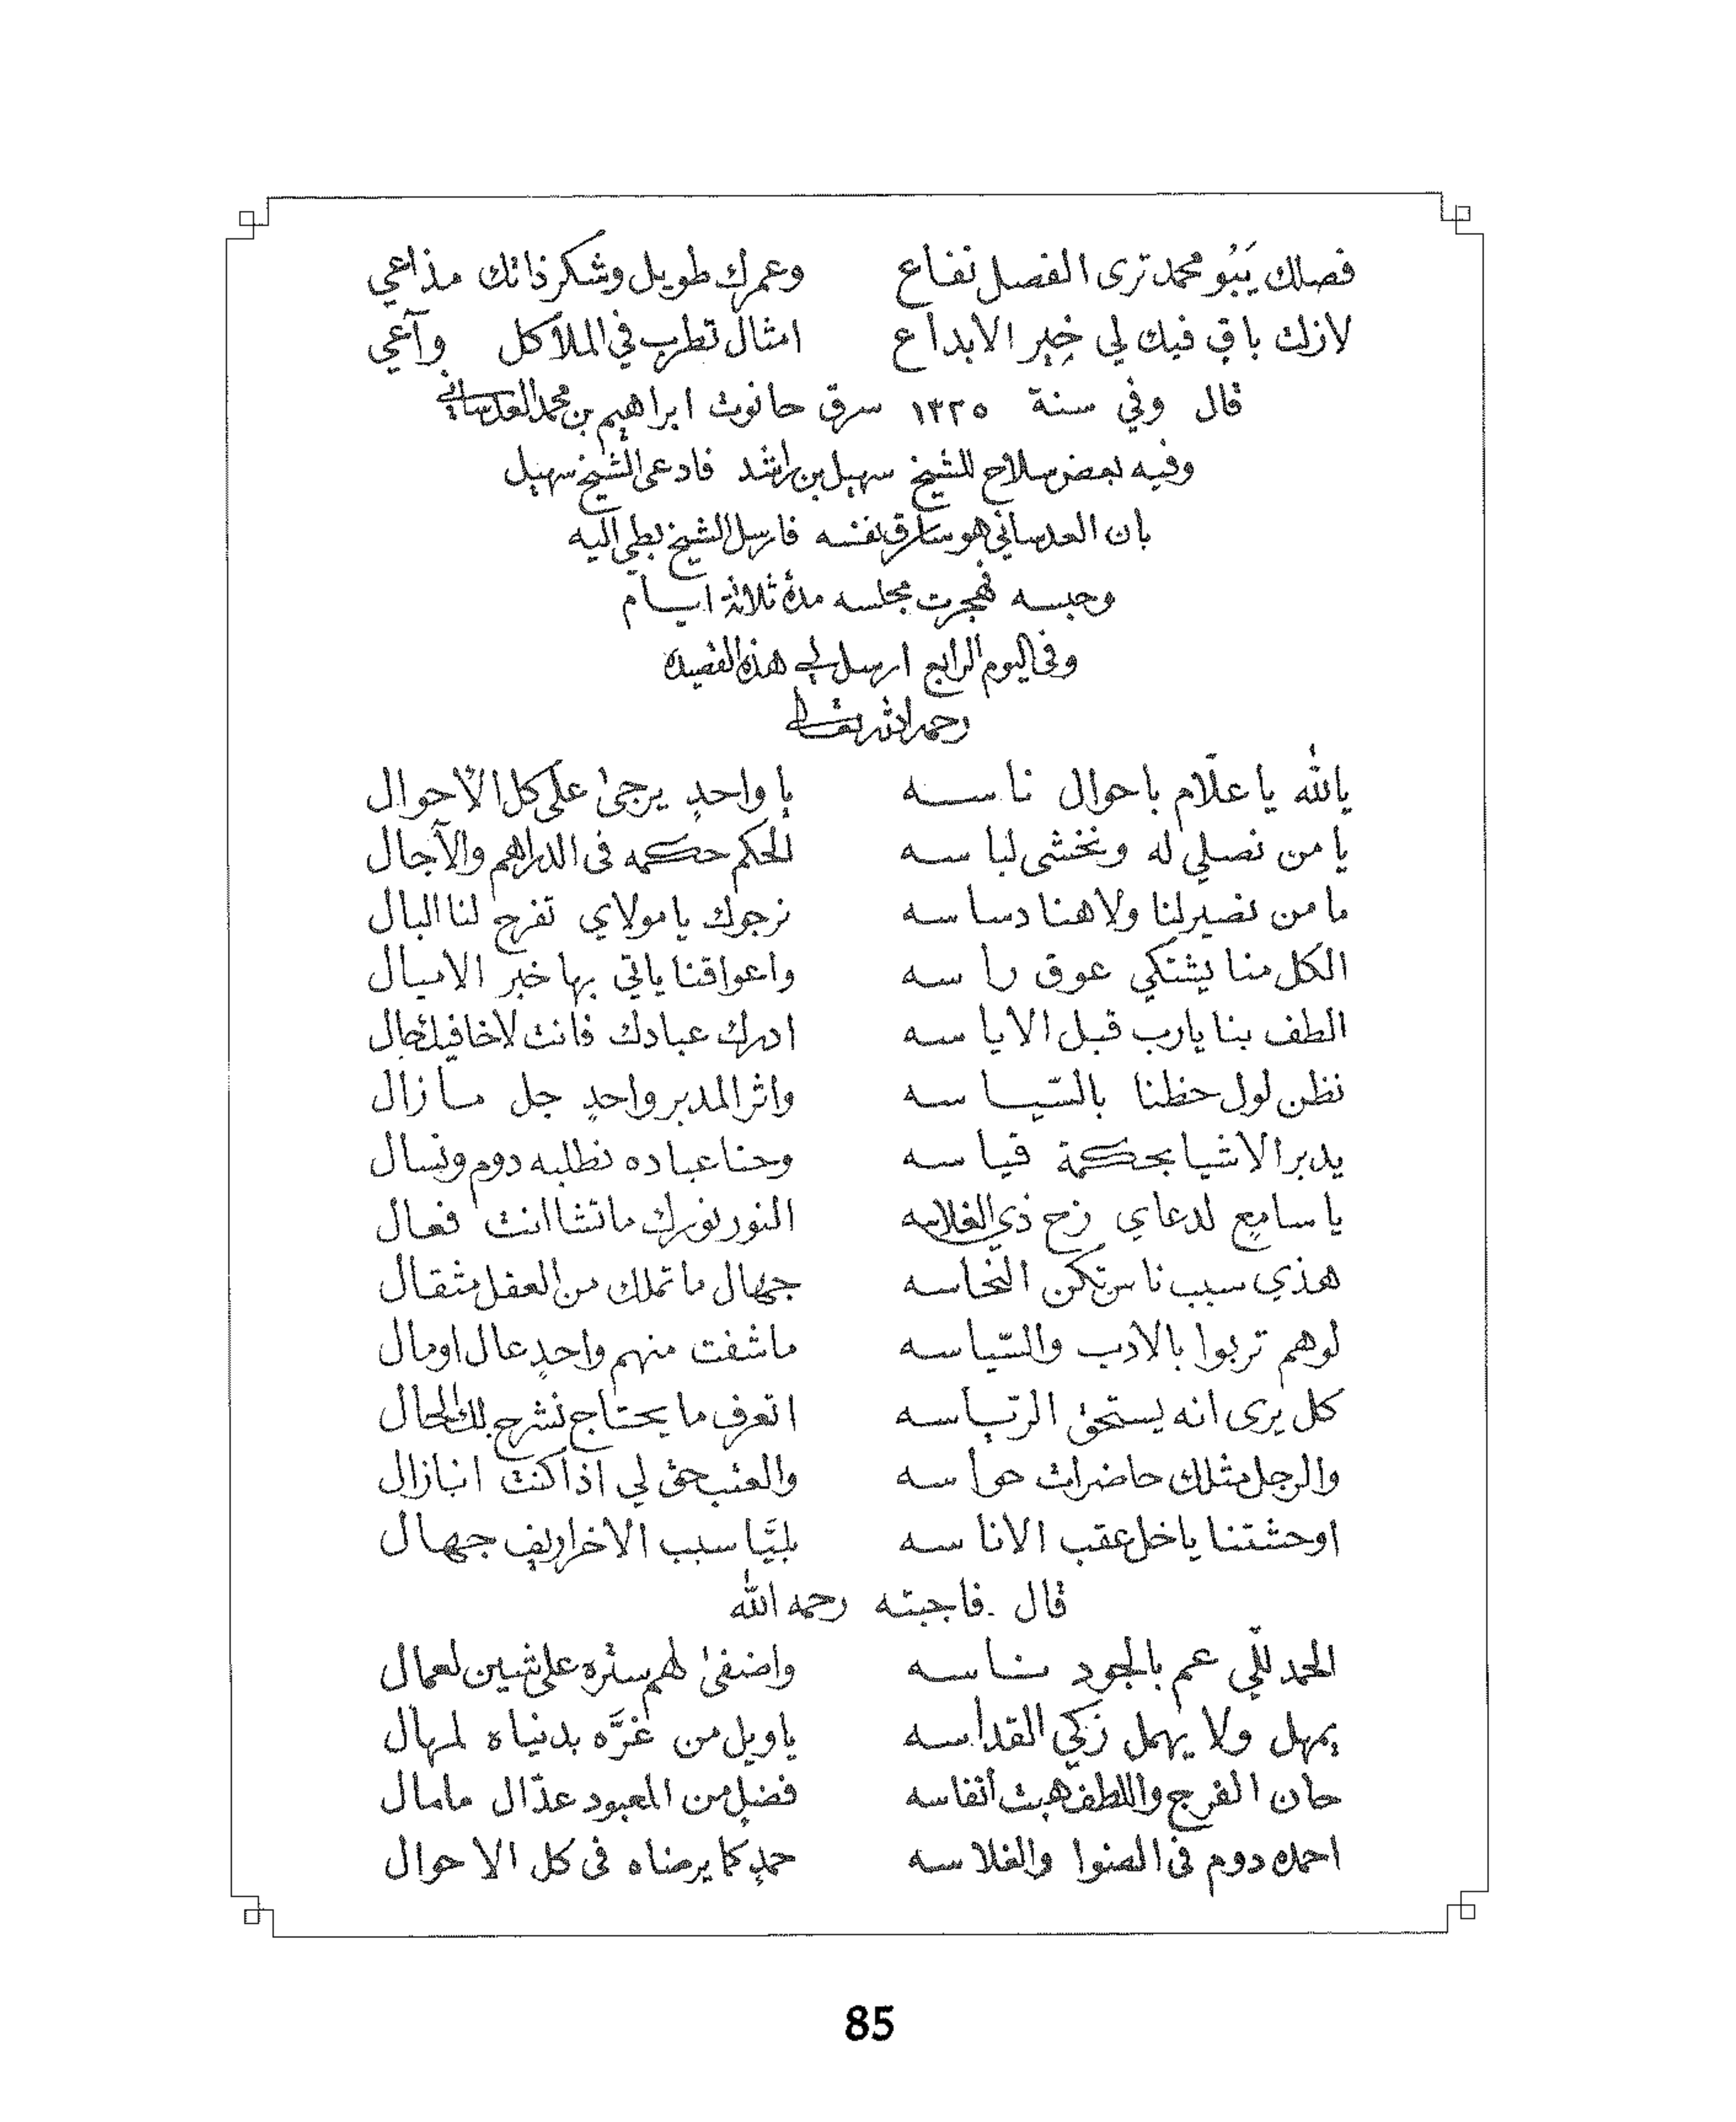 فصلك يَبُو محمد ترى الفصل نفاع وعمرك طويل وشكر ذاتك مذاعي
لازلت باقٍ فيك لي خِبِر الابداع امثال تطرب في الملأ كل وآعي
قال وفي سنة ١٣٢٥ سرق حانوت ابراهيم بن محمد العدساني
وفيه بعض سلاح للشيخ سهيل بن راشد فادعى الشيخ سهيل
بان العدساني هو سارق نفسه فارسل الشيخ بطي اليه
وحبسه فهجرت مجلسه مدة ثلاثة ايام
وفى اليوم الرابع ارسل لي هذه القصيده
رحمه الله تعالى
يالله يا علّام باحوال ناسه يا واحدٍ يرجىٰ على كل الأحوال
يا من نصلي له ونخشى لباسه الحكم حكمه فى الدراهم والآجال
ما من نصير لنا ولا هنا دساسه نرجوك يا مولاي تفرج لنا البال
الكل منا يشتكي عوق راسه واعواقنا ياتي بها خبر الاميال
الطف بنا يارب قبل الاياسه ادرك عبادك فانت لاخافيك حال
نظن لول حظنا بالسّياسه واثر المدبر واحدٍ جل مازال
يدبر الاشيا بحكمة قياسه وحنا عباده نطلبه دوم ونسال
يا سامعٍ لدعاي زح ذي الغلاسه النور نورك ماتشا انت فعال
هذي سبب ناسٍ تكن النّحاسه جهال ما تملك من العقل مثقال
لوهم تربوا بالادب والسّياسه ماشفت منهم واحدٍ عال اومال
كل يرى انه يستحق الرتباسه اتعرف ما يحتاج نشرح بك الحال
والرجل مثلك حاضرات حواسه والعتب حق لي اذا كنت انبازال
اوحشتنا ياخل عقب الاناسه بليَّا سبب الاخراريف جهال
قال فاجبته رحمه الله
الحمد للّي عم بالجود ناسه واضفىٰ لهم ستره على شين لعمال
يمهل ولا يهمل زَكي القداسه ياويل من غرَّه بدنياه لمهال
حان الفرج واللطف هبت أنفاسه فضلٍ من المعبود عدّال مامال
احمده دوم فى الضوا والغلاسه حمدٍ كما يرضاه فى كل الاحوال
85